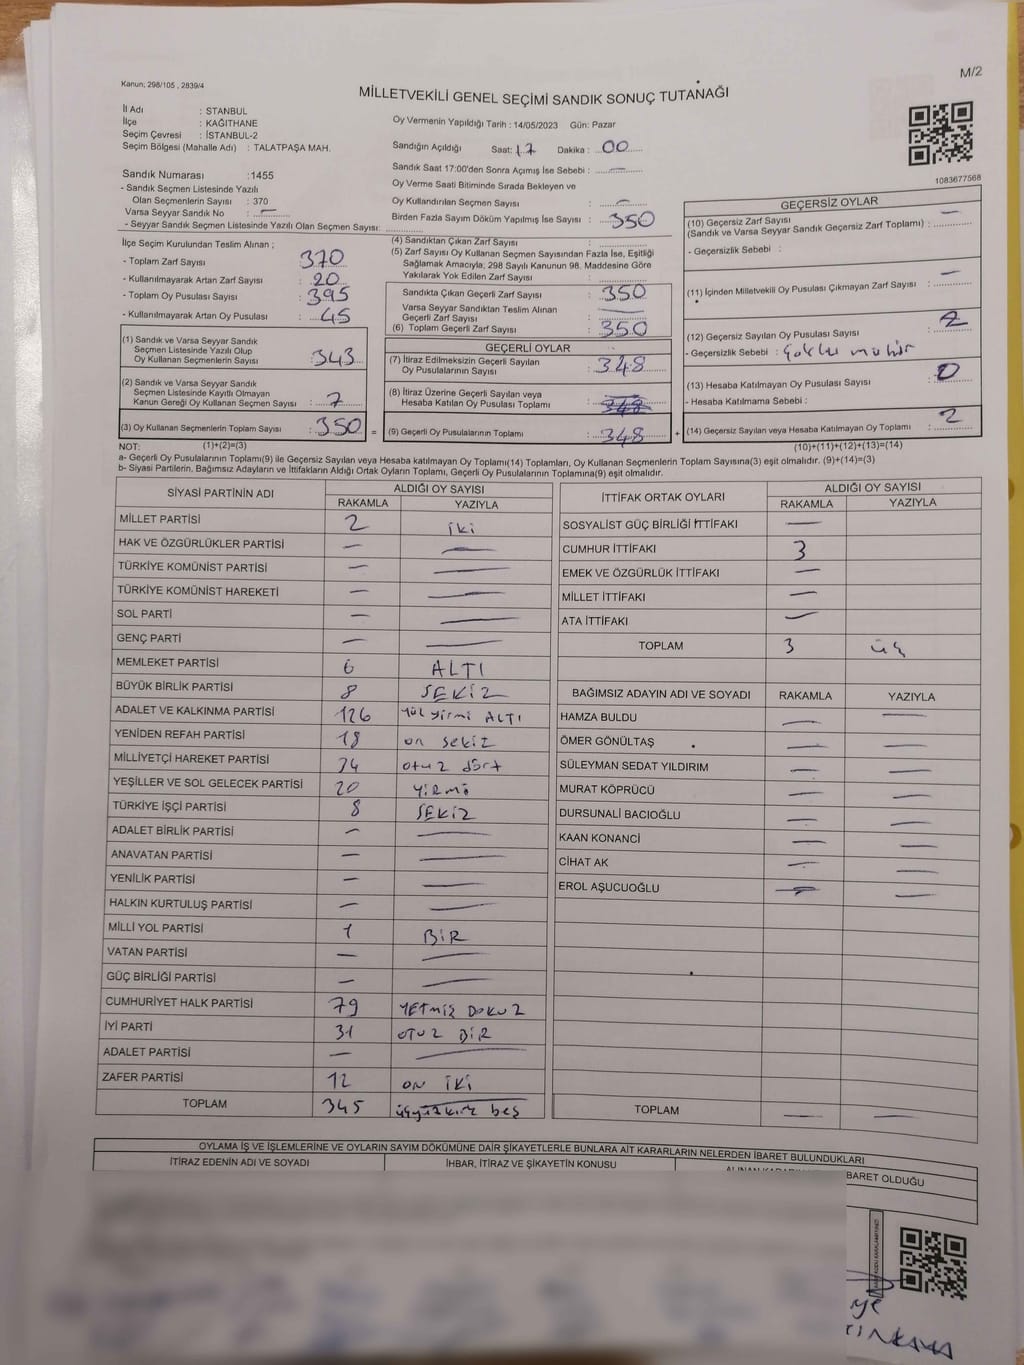 M/2
Kanun; 298/105 , 2839/4
MİLLETVEKİLİ GENEL SEÇİMİ SANDIK SONUÇ TUTANAĞI
İl Adı : STANBUL
İlçe : KAĞITHANE
Seçim Çevresi : İSTANBUL-2
Seçim Bölgesi (Mahalle Adı) : TALATPAŞA MAH.
Sandık Numarası :1455
- Sandık Seçmen Listesinde Yazılı
Olan Seçmenlerin Sayısı : 370
Varsa Seyyar Sandık No : —
- Seyyar Sandık Seçmen Listesinde Yazılı Olan Seçmen Sayısı:
Oy Vermenin Yapıldığı Tarih : 14/05/2023 Gün: Pazar
Sandığın Açıldığı Saat: 17 Dakika : 00
Sandık Saat 17:00'den Sonra Açımış İse Sebebi : —
Oy Verme Saati Bitiminde Sırada Bekleyen ve
Oy Kullandırılan Seçmen Sayısı : —
Birden Fazla Sayım Döküm Yapılmış İse Sayısı : 350
1083677568
İlçe Seçim Kurulundan Teslim Alınan ;
- Toplam Zarf Sayısı : 370
- Kullanılmayarak Artan Zarf Sayısı : 20
- Toplam Oy Pusulası Sayısı : 395
- Kullanılmayarak Artan Oy Pusulası : 45
(1) Sandık ve Varsa Seyyar Sandık
Seçmen Listesinde Yazılı Olup
Oy Kullanan Seçmenlerin Sayısı : 343
(2) Sandık ve Varsa Seyyar Sandık
Seçmen Listesinde Kayıtlı Olmayan
Kanun Gereği Oy Kullanan Seçmen Sayısı : 7
(3) Oy Kullanan Seçmenlerin Toplam Sayısı : 350 =
(4) Sandıktan Çıkan Zarf Sayısı :
(5) Zarf Sayısı Oy Kullanan Seçmen Sayısından Fazla İse, Eşitliği
Sağlamak Amacıyla; 298 Sayılı Kanunun 98. Maddesine Göre
Yakılarak Yok Edilen Zarf Sayısı :
Sandıkta Çıkan Geçerli Zarf Sayısı : 350
Varsa Seyyar Sandıktan Teslim Alınan
Geçerli Zarf Sayısı : —
(6) Toplam Geçerli Zarf Sayısı : 350
GEÇERLİ OYLAR
(7) İtiraz Edilmeksizin Geçerli Sayılan
Oy Pusulalarının Sayısı : 348
(8) İtiraz Üzerine Geçerli Sayılan veya
Hesaba Katılan Oy Pusulası Toplamı :
(9) Geçerli Oy Pusulalarının Toplamı : 348 +
GEÇERSİZ OYLAR
(10) Geçersiz Zarf Sayısı —
(Sandık ve Varsa Seyyar Sandık Geçersiz Zarf Toplamı) :
- Geçersizlik Sebebi :
(11) İçinden Milletvekili Oy Pusulası Çıkmayan Zarf Sayısı : —
(12) Geçersiz Sayılan Oy Pusulası Sayısı : 2
- Geçersizlik Sebebi : çoklu mühür
(13) Hesaba Katılmayan Oy Pusulası Sayısı : 0
- Hesaba Katılmama Sebebi :
(14) Geçersiz Sayılan veya Hesaba Katılmayan Oy Toplamı : 2
NOT: (1)+(2)=(3) (10)+(11)+(12)+(13)=(14)
a- Geçerli Oy Pusulalarının Toplamı(9) ile Geçersiz Sayılan veya Hesaba katılmayan Oy Toplamı(14) Toplamları, Oy Kullanan Seçmenlerin Toplam Sayısına(3) eşit olmalıdır. (9)+(14)=(3)
b- Siyasi Partilerin, Bağımsız Adayların ve İttifakların Aldığı Ortak Oyların Toplamı, Geçerli Oy Pusulalarının Toplamına(9) eşit olmalıdır.
SİYASİ PARTİNİN ADI ALDIĞI OY SAYISI
RAKAMLA YAZIYLA
MİLLET PARTİSİ 2 iki
HAK VE ÖZGÜRLÜKLER PARTİSİ — —
TÜRKİYE KOMÜNİST PARTİSİ — —
TÜRKİYE KOMÜNİST HAREKETİ — —
SOL PARTİ — —
GENÇ PARTİ — —
MEMLEKET PARTİSİ 6 ALTI
BÜYÜK BİRLİK PARTİSİ 8 SEKİZ
ADALET VE KALKINMA PARTİSİ 126 yüz yirmi ALTI
YENİDEN REFAH PARTİSİ 18 on sekiz
MİLLİYETÇİ HAREKET PARTİSİ 34 otuz dört
YEŞİLLER VE SOL GELECEK PARTİSİ 20 yirmi
TÜRKİYE İŞÇİ PARTİSİ 8 SEKİZ
ADALET BİRLİK PARTİSİ — —
ANAVATAN PARTİSİ — —
YENİLİK PARTİSİ — —
HALKIN KURTULUŞ PARTİSİ — —
MİLLİ YOL PARTİSİ 1 BİR
VATAN PARTİSİ — —
GÜÇ BİRLİĞİ PARTİSİ — —
CUMHURİYET HALK PARTİSİ 79 YETMİŞ DOKUZ
İYİ PARTİ 31 OTUZ BİR
ADALET PARTİSİ — —
ZAFER PARTİSİ 12 ON İKİ
TOPLAM 345 üçyüzkırk beş
İTTİFAK ORTAK OYLARI ALDIĞI OY SAYISI
RAKAMLA YAZIYLA
SOSYALİST GÜÇ BİRLİĞİ İTTİFAKI —
CUMHUR İTTİFAKI 3
EMEK VE ÖZGÜRLÜK İTTİFAKI —
MİLLET İTTİFAKI —
ATA İTTİFAKI —
TOPLAM 3 üç
BAĞIMSIZ ADAYIN ADI VE SOYADI RAKAMLA YAZIYLA
HAMZA BULDU — —
ÖMER GÖNÜLTAŞ — —
SÜLEYMAN SEDAT YILDIRIM — —
MURAT KÖPRÜCÜ — —
DURSUNALİ BACIOĞLU — —
KAAN KONANCİ — —
CİHAT AK — —
EROL AŞUCUOĞLU — —
TOPLAM — —
OYLAMA İŞ VE İŞLEMLERİNE VE OYLARIN SAYIM DÖKÜMÜNE DAİR ŞİKAYETLERLE BUNLARA AİT KARARLARIN NELERDEN İBARET BULUNDUKLARI
İTİRAZ EDENİN ADI VE SOYADI İHBAR, İTİRAZ VE ŞİKAYETİN KONUSU BARET OLDUĞU